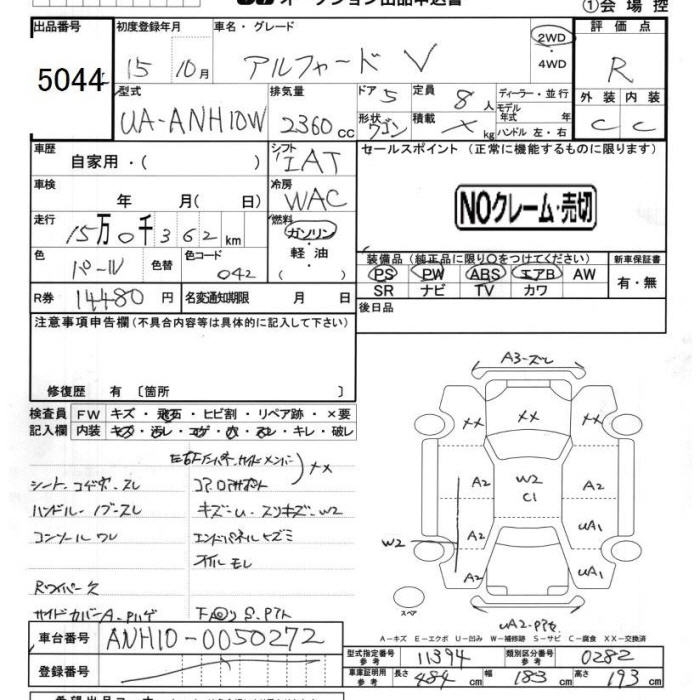 オークション出品申込書
①会場控
出品番号 5044
初度登録年月 15 10月
車名・グレード アルファード V
2WD ・ 4WD
評価点 R
型式 UA-ANH10W
排気量 2360 cc
ドア 5
定員 8人
形状 ワゴン
積載 × kg
ディーラー・並行
モデル年式 年
ハンドル 左・右
外装 C
内装 C
車歴 自家用・( )
シフト IAT
セールスポイント (正常に機能するものに限ります)
NOクレーム・売切
車検 年 月( 日)
冷房 WAC
走行 15万0千362km
燃料 ガソリン・軽油・( )
色 パール
色替
色コード 042
装備品 (純正品に限り○をつけてください)
PS PW ABS エアB AW
SR ナビ TV カワ
新車保証書 有・無
R券 14480円
名変通知期限 月 日
後日品
注意事項申告欄 (不具合内容等は具体的に記入して下さい)
修復歴 有 〔箇所 〕
検査員記入欄
FW キズ・飛石・ヒビ割・リペア跡・×要
内装 キズ・汚レ・コゲ・穴・スレ・キレ・破レ
シート・コゲ穴・スレ
ハンドル・ノブ・スレ
コンソールワレ
キズ・U・スリキズ・W2
エンドパネルキズミ
オイルモレ
Rワイパー欠
A3・スレ
×× ×× ××
A2 W2 C1 A2
A2 UA1
W2
A2 UA1
スペア
A-キズ E-エクボ U-凹み W-補修跡 S-サビ C-腐食 XX-交換済
車台番号 ANH10-0050272
登録番号
型式指定番号 参考 11394
類別区分番号 参考 0282
車庫証明用 参考 長さ 484 cm 幅 183 cm 高さ 193 cm